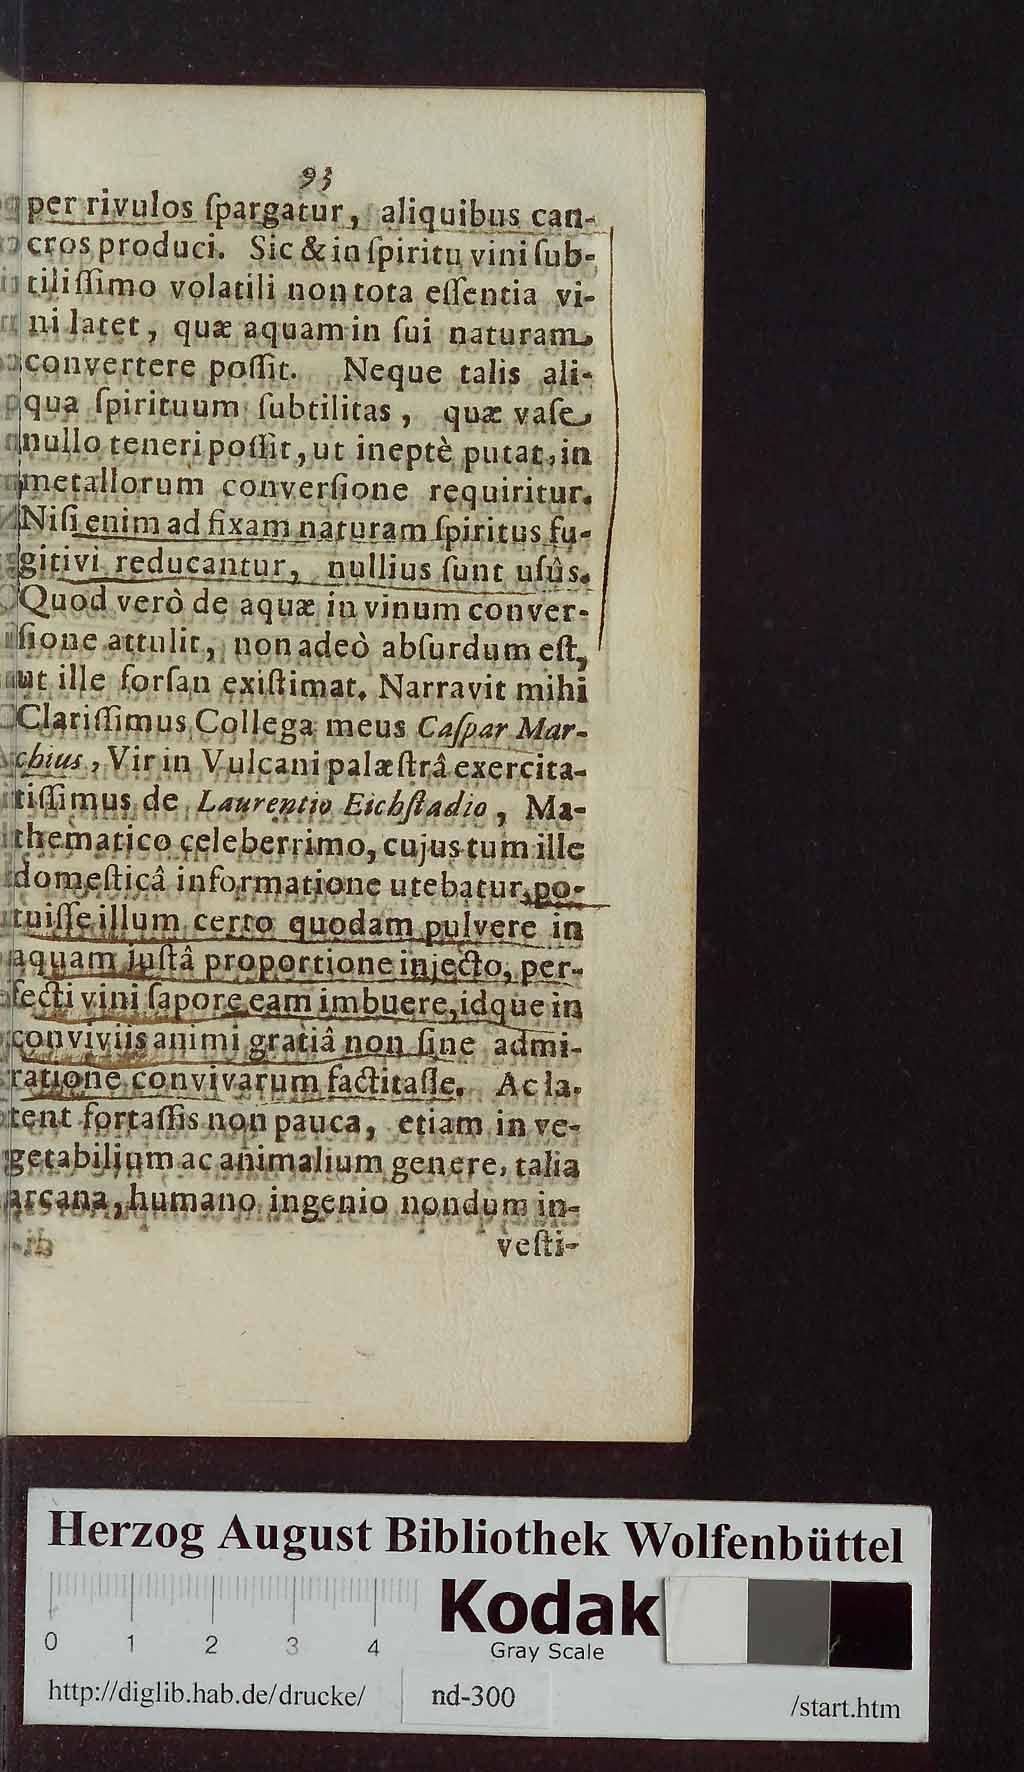 93
per rivulos ſpargatur, aliquibus can-
cros produci. Sic & in ſpiritu vini ſub-
tiliſſimo volatili non tota eſſentia vi-
ni latet, quæ aquam in ſui naturam
convertere poſſit. Neque talis ali-
qua ſpirituum ſubtilitas, quæ vaſe
nullo teneri poſſit, ut ineptè putat, in
metallorum converſione requiritur.
Niſi enim ad fixam naturam ſpiritus fu-
gitivi reducantur, nullius ſunt uſûs.
Quod verò de aquæ in vinum conver-
ſione attulit, non adeò abſurdum eſt,
ut ille forſan exiſtimat. Narravit mihi
Clariſſimus Collega meus Caſpar Mar-
chius, Vir in Vulcani palæſtrâ exercita-
tiſſimus de Laurentio Eichſtadio, Ma-
thematico celeberrimo, cujus tum ille
domeſticâ informatione utebatur, po-
tuiſſe illum certo quodam pulvere in
aquam juſtâ proportione injecto, per-
fecti vini ſapore eam imbuere, idque in
conviviis animi gratiâ non ſine admi-
ratione convivarum factitaſſe. Ac la-
tent fortaſſis non pauca, etiam in ve-
getabilium ac animalium genere, talia
arcana, humano ingenio nondum in-
veſti-
Herzog August Bibliothek Wolfenbüttel
Kodak
Gray Scale
0 1 2 3 4
http://diglib.hab.de/drucke/ nd-300 /start.htm